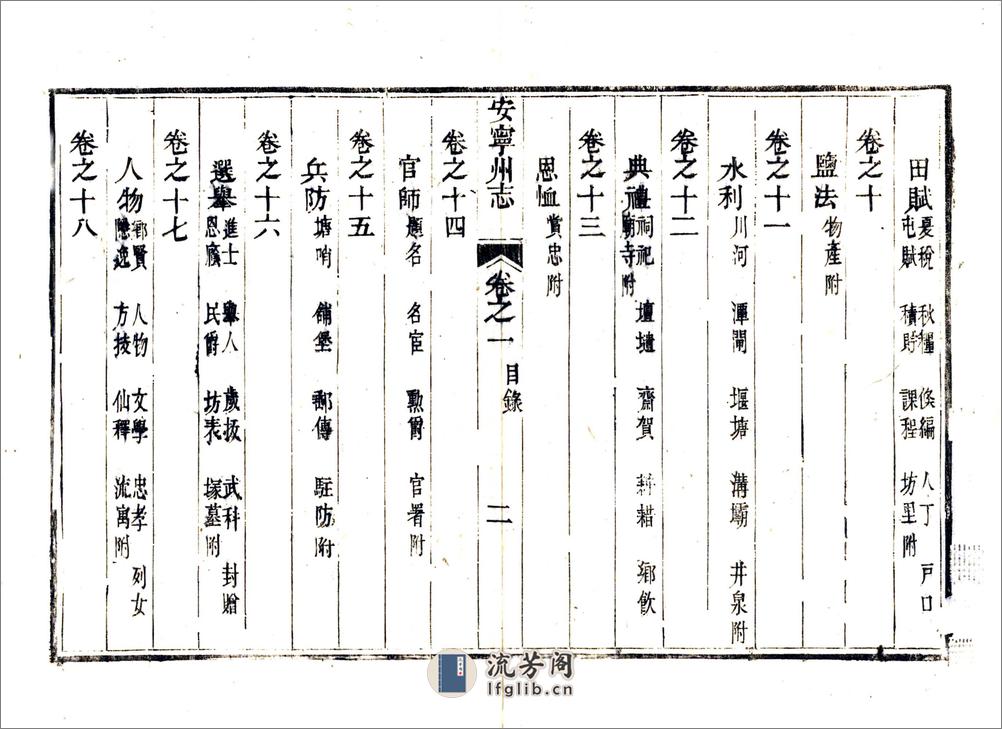 田賦 夏稅 秋糧 條編 人丁 戸口 屯賦 積貯 課程 坊里附
卷之十
鹽法 物產附
卷之十一
水利 川河 潭閘 堰塘 溝壩 井泉附
卷之十二
典禮 祠祀 廟寺附 壇壝 齋賀 耕耤 鄉飲
卷之十三
恩恤 賞忠附
安寧州志 卷之一 目錄 二
卷之十四
官師 題名 名宦 勲爵 官署附
卷之十五
兵防 塘哨 舖堡 郵傳 駐防附
卷之十六
選舉 進士 舉人 歲拔 武科 封贈 恩廕 民爵 坊表 塚墓附
卷之十七
人物 鄉賢 人物 文學 忠孝 列女 隱逸 方技 仙釋 流寓附
卷之十八
流芳阁
lfglib.cn